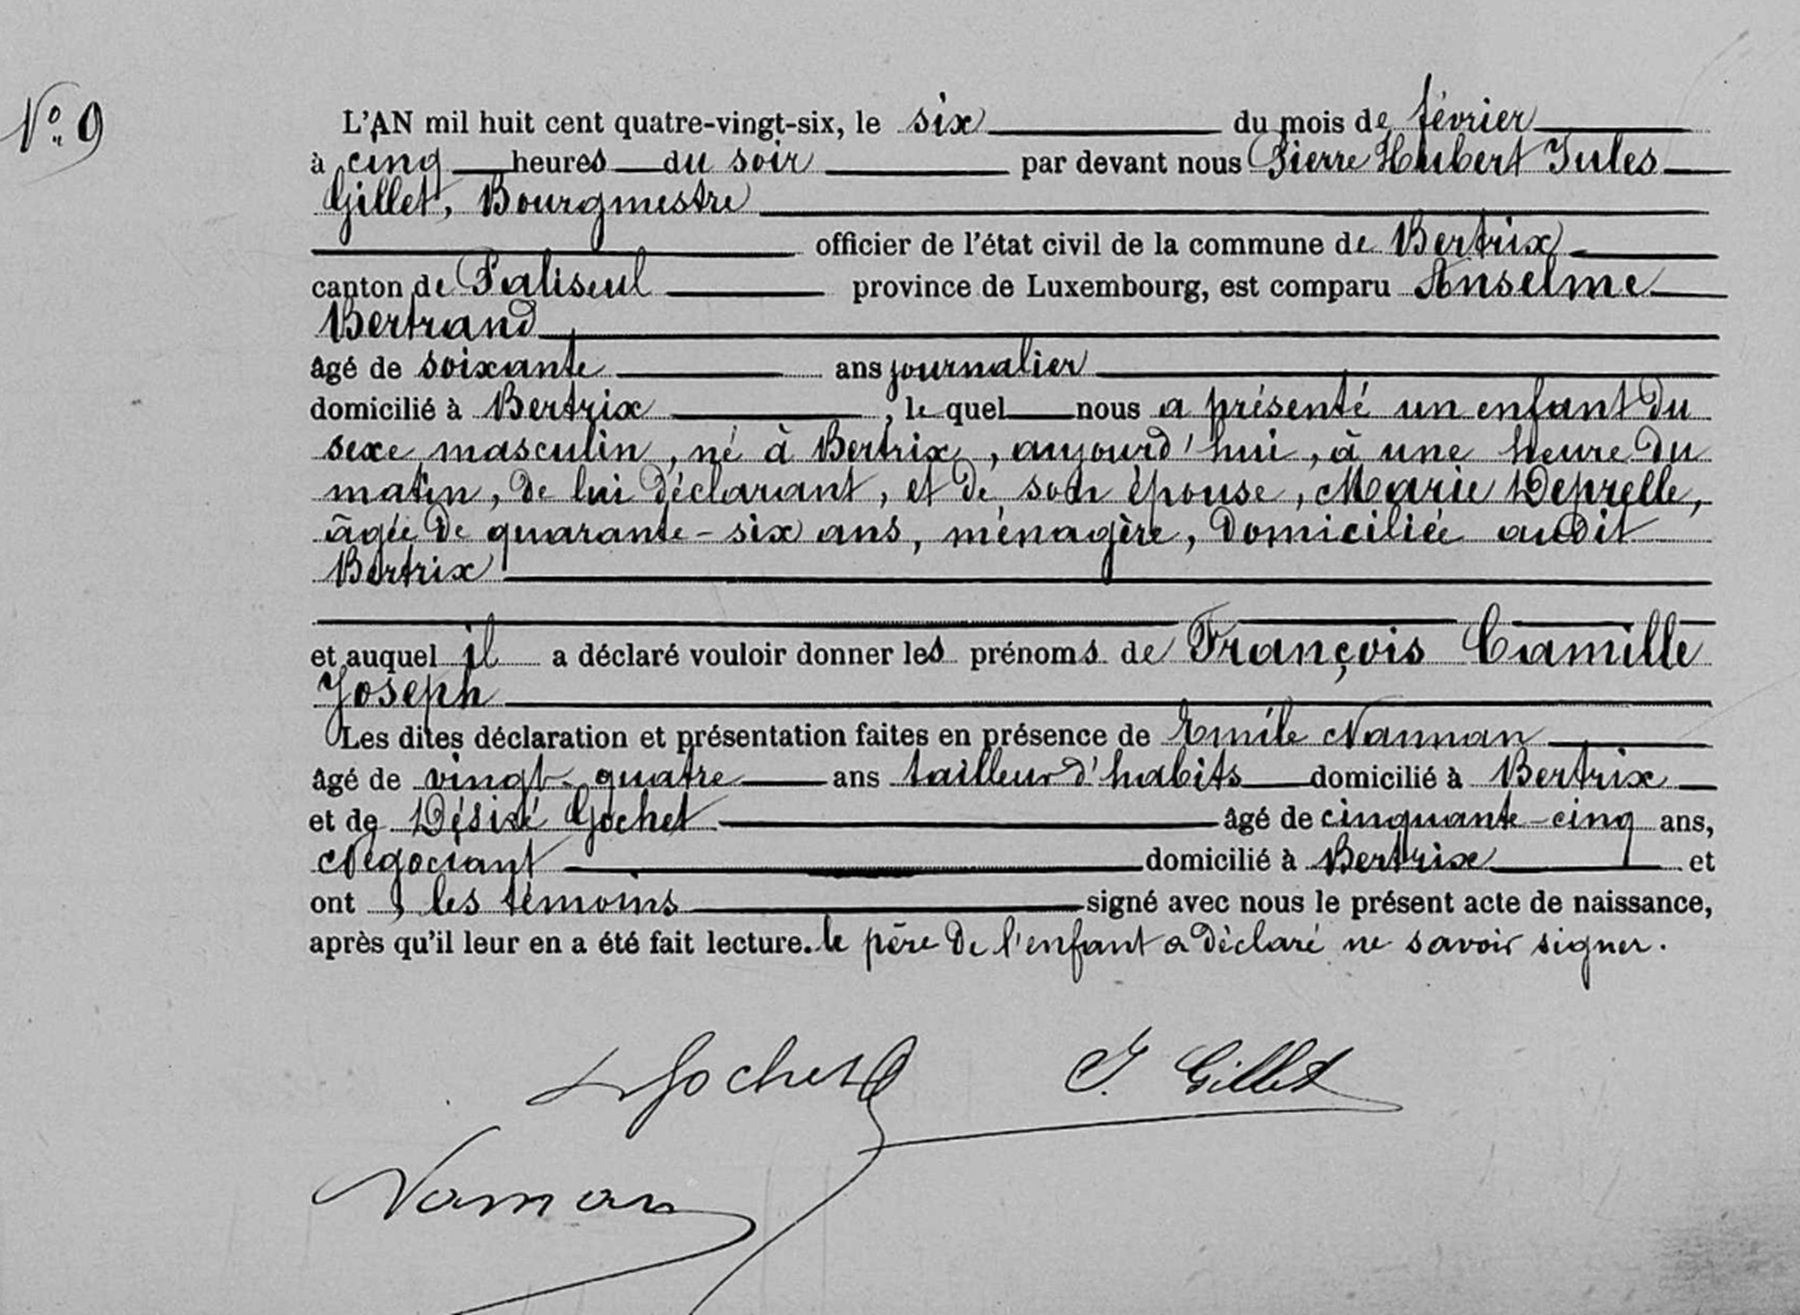 N° 9
L'AN mil huit cent quatre-vingt-six, le six du mois de février
à cinq heures du soir par devant nous Pierre Hubert Jules
Gillet, Bourgmestre
officier de l'état civil de la commune de Bertrix
canton de Paliseul province de Luxembourg, est comparu Anselme
Bertrand
âgé de soixante ans journalier
domicilié à Bertrix, le quel nous a présenté un enfant du
sexe masculin, né à Bertrix, aujourd'hui, à une heure du
matin, de lui déclarant, et de son épouse, Marie Deprelle,
âgée de quarante-six ans, ménagère, domiciliée audit
Bertrix
et auquel il a déclaré vouloir donner les prénoms de François Camille
Joseph
Les dites déclaration et présentation faites en présence de Emile Nannan
âgé de vingt-quatre ans tailleur d'habits domicilié à Bertrix
et de Désiré Gochet âgé de cinquante-cinq ans,
Négociant domicilié à Bertrix et
ont les témoins signé avec nous le présent acte de naissance,
après qu'il leur en a été fait lecture. le père de l'enfant a déclaré ne savoir signer.
Gochet J. Gillet
Naman